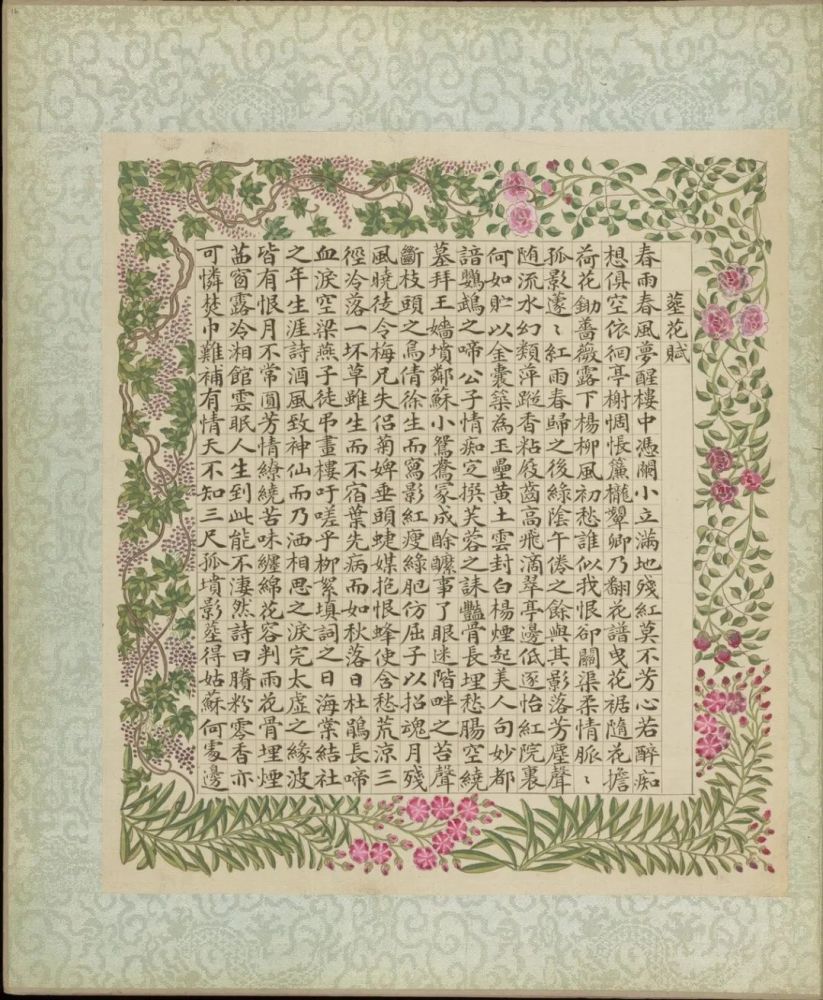 塟花賦
春雨春風夢醒樓中憑闌小立滿地殘紅莫不芳心若醉痴
想俱空依徊亭榭惆悵簾櫳顰卿乃翻花譜曳花裾隨花擔
荷花鋤薔薇露下楊柳風初愁誰似我恨卻關渠柔情脈ミ
孤影蘧ミ紅雨春歸之後綠陰午倦之餘與其影落芳塵聲
随流水幻類萍蹤香粘屐齒高飛滴翠亭邊低逐怡紅院裏
何如貯以金囊築為玉壘黄土雲封白楊煙起美人句妙都
諳鸚鵡之啼公子情痴定撰芙蓉之誄豔骨長埋愁腸空繞
墓拜王嬙墳鄰蘇小鴛鴦冢成酴醿事了眼迷階畔之苔聲
斷枝頭之鳥倩徐生而寫影紅瘦綠肥仿屈子以招魂月殘
風曉徒令梅兄失侣菊婢垂頭蜨媒抱恨蜂使含愁荒涼三
徑冷落一坏草雖生而不宿葉先病而如秋落日杜鵑長啼
血淚空梁燕子徒弔畫樓吁嗟乎柳絮填詞之日海棠結社
之年生涯詩酒風致神仙而乃洒相思之淚完太虛之緣波
皆有恨月不常圓芳情繚繞苦味纏綿花容判雨花骨埋煙
茁窗露冷湘館雲眠人生到此能不淒然詩曰賸粉零香亦
可憐焚巾難補有情天不知三尺孤墳影塟得姑蘇何處邊